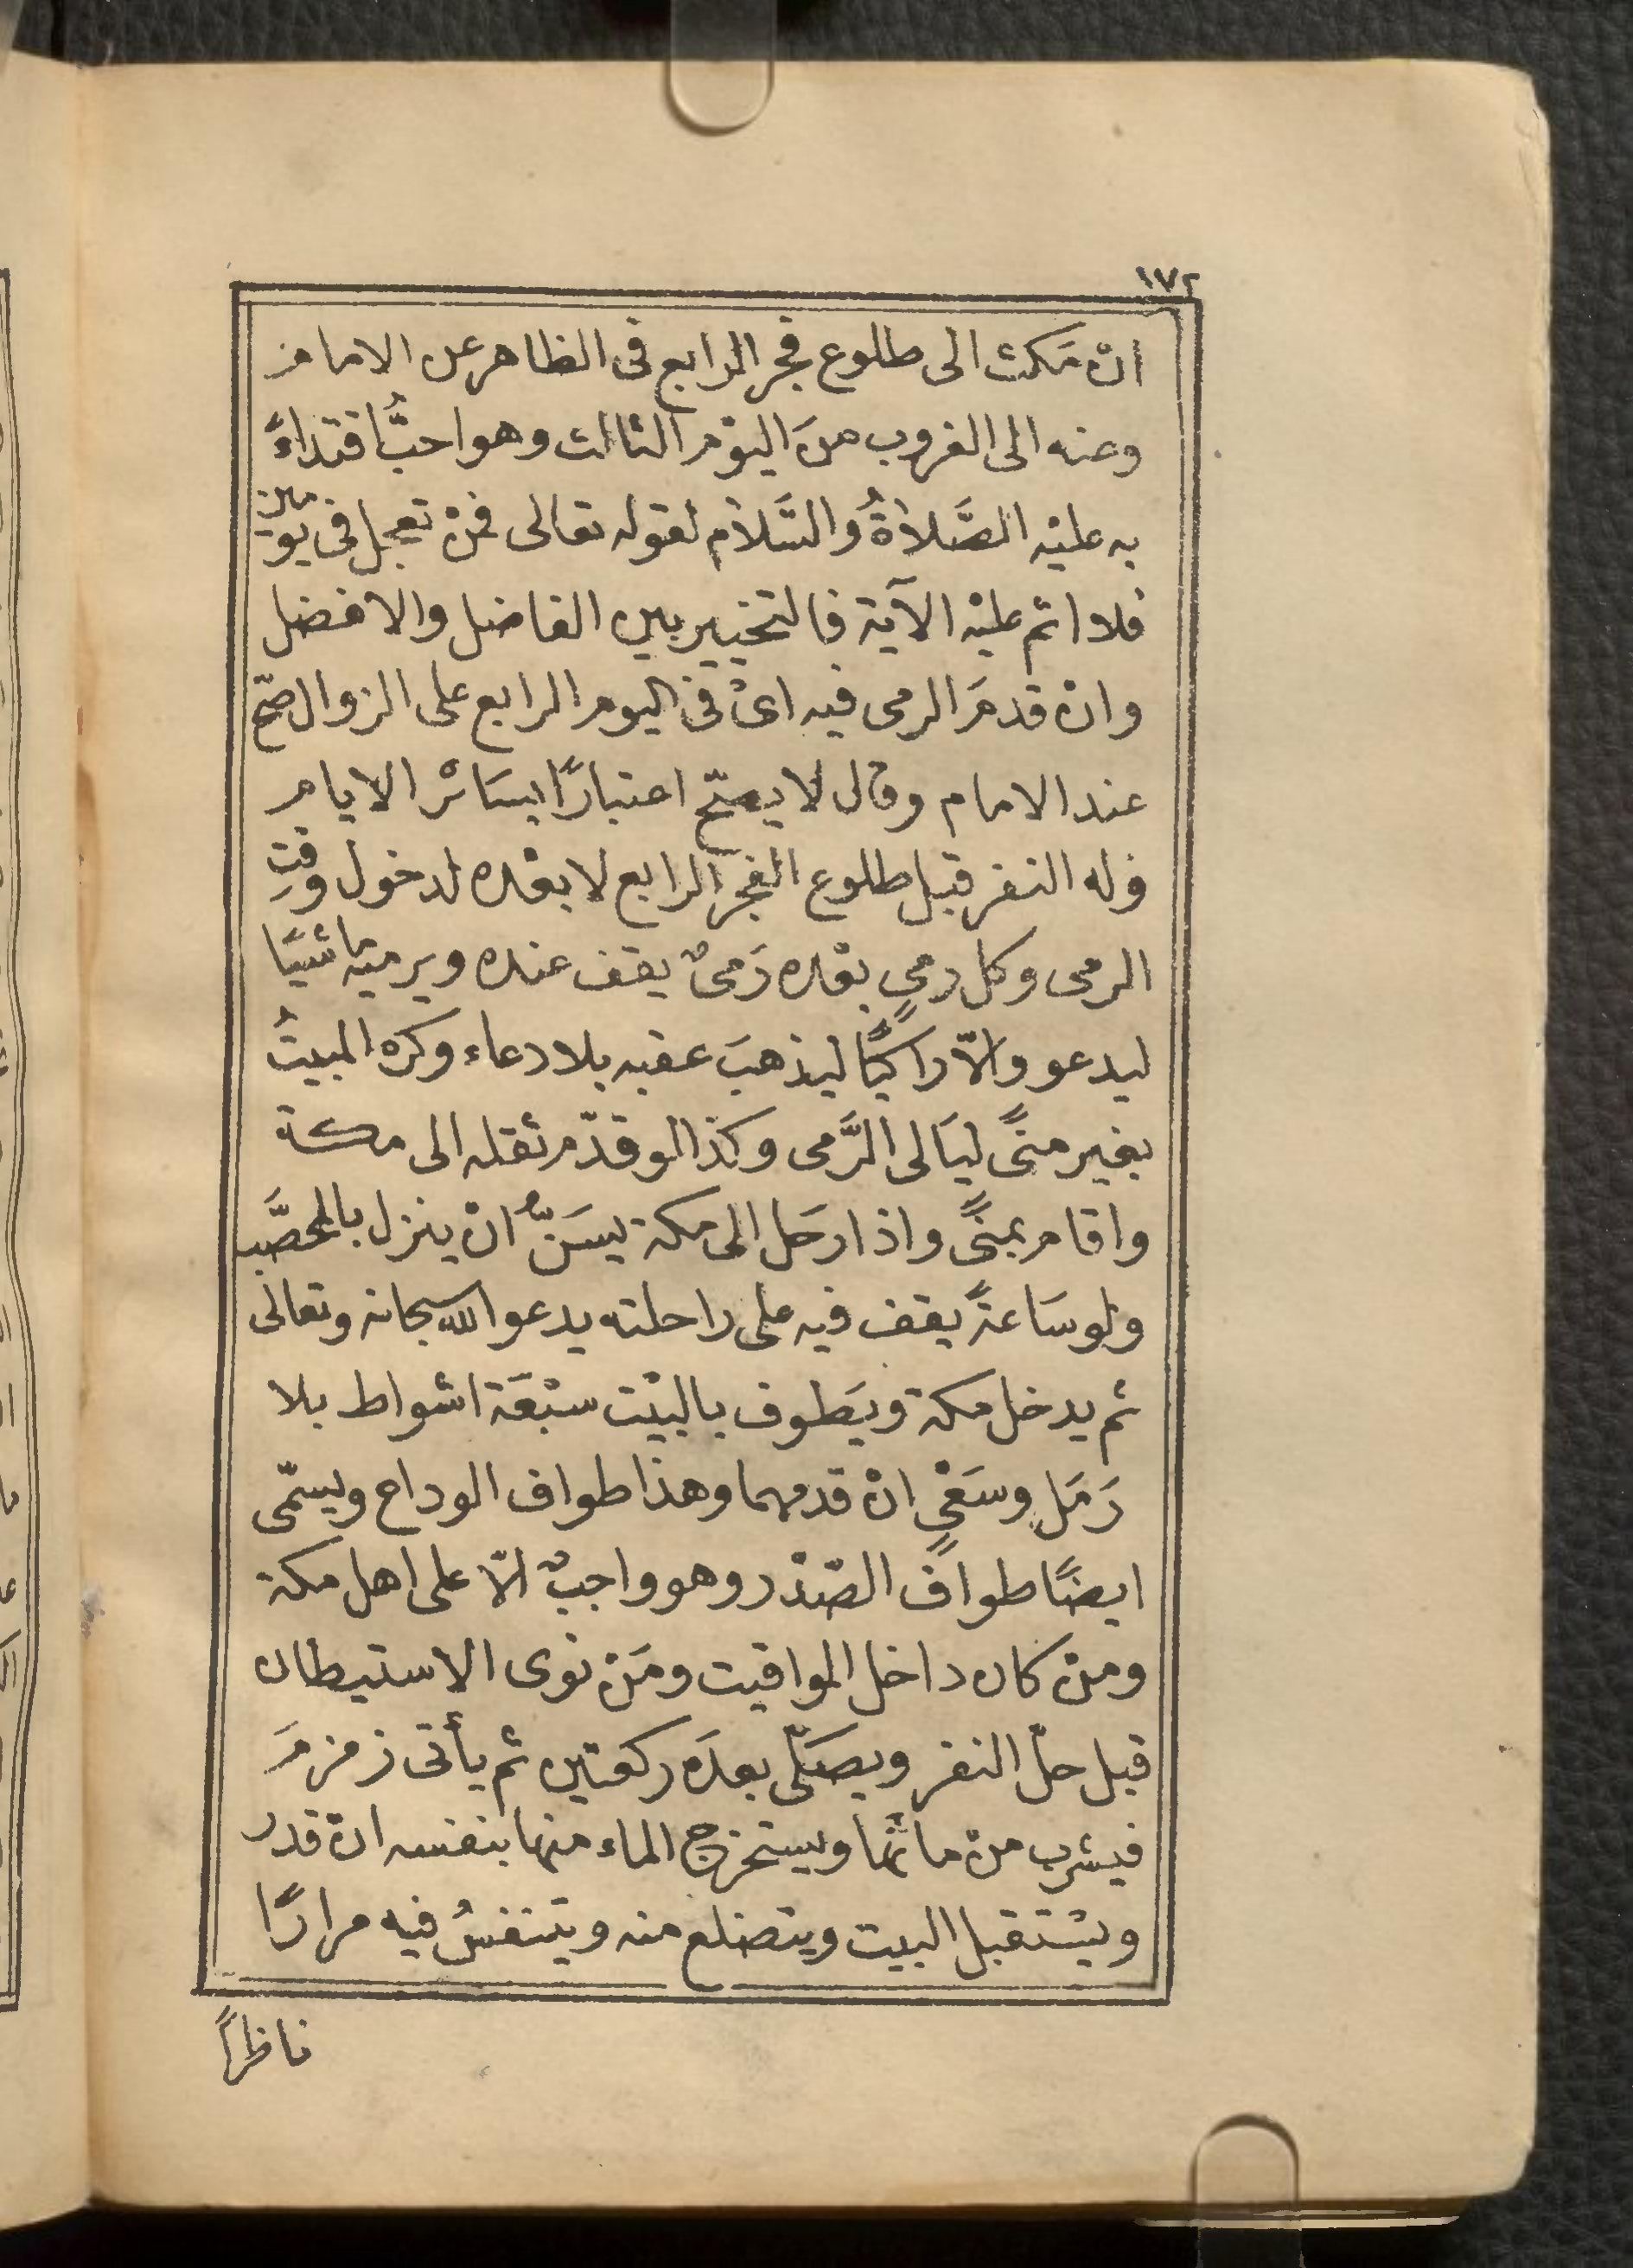 ١٧٢
انْ مَكث الى طلوع فجر الرابع فى الظاهر عن الامام
وعنه الى الغروب منَ اليوْم الثالث وهو احبُّ اقتداءً
به عليْه الصَّلاةُ والسَّلام لقوله تعالى فمنْ تعجل فى يومين
فلا اثم عليْه الآية فالتخيير بين الفاضل والافضل
وانْ قدمَ الرمى فيه اىْ فى اليوم الرابع على الزوال صحّ
عند الامام وقال لا يصحّ اعتبارًا بسَائر الايام
وله النفر قبل طلوع الفجر الرابع لا بعْده لدخول وقتِ
الرمى وكل رمىٍ بعْده رَمىٌ يقف عنده ويرميه ماشيًا
ليدعو والاّ راكبًا ليذهبَ عقبه بلا دعاء وكره المبيتُ
بغير منىً ليَالى الرَّمى وكذا لو قدّم ثقله الى مكة
واقام بمنىً واذا رحَل الى مكة يسَنّ انْ ينزل بالمحصَّب
ولو سَاعةً يقف فيه على راحلته يدعو الله سبحانه وتعالى
ثم يدخل مكة ويَطوف بالبيْت سبْعَة اشواط بلا
رَمَلٍ وسَعْىٍ انْ قدمهما وهذا طواف الوداع ويسمّى
ايضًا طوافَ الصّدْر وهو واجبٌ الاّ على اهل مكة
ومنْ كان داخل المواقيت ومَنْ نوى الاستيطان
قبل حلّ النفر ويصَلّى بعدَه ركعتين ثم يأتى زمزمَ
فيشرب منْ مائها ويستخرج الماء منها بنفسه انْ قدر
ويسْتقبل البيت ويتضلع منه ويتنفسُ فيه مرارًا
ناظرًا